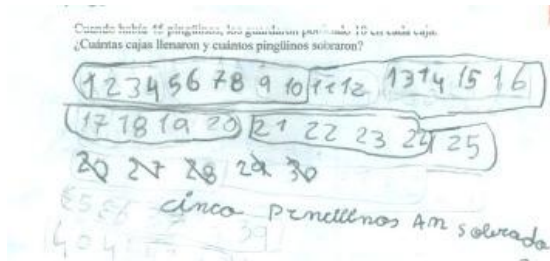 Cuando había 45 pingüinos, los guardaron poniendo 10 en cada caja.
¿Cuántas cajas llenaron y cuántos pingüinos sobraron?
1 2 3 4 5 6 7 8 9 10 11 12 13 14 15 16
17 18 19 20 21 22 23 24 25
27 28 29 30
cinco pinellinos An sobrado
39